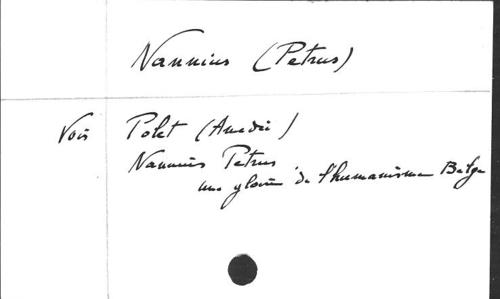 Nannius (Petrus)
Voir Polet (Amédée)
Nannius Petrus
une gloire de l'humanisme Belge